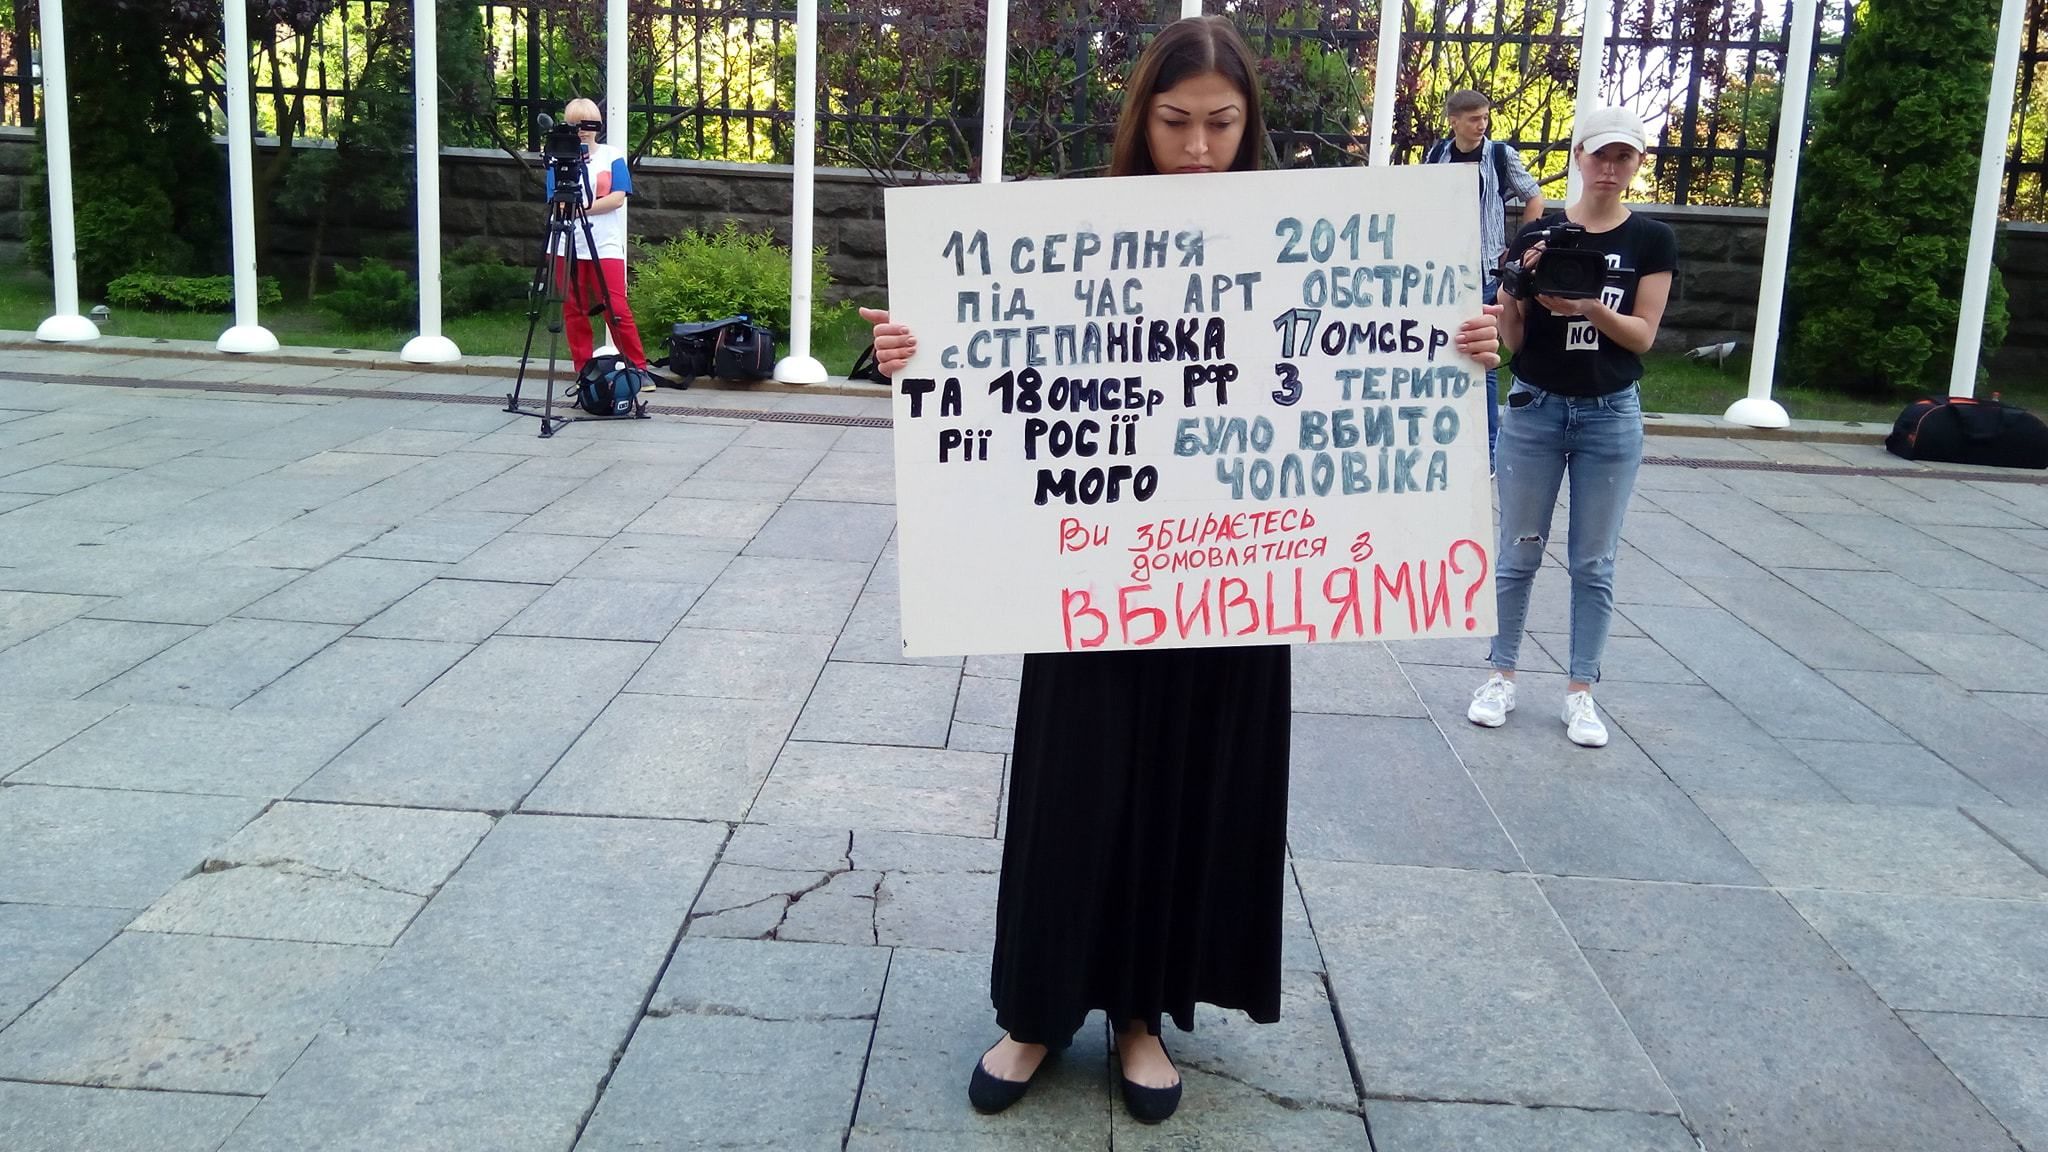 11 СЕРПНЯ 2014
ПІД ЧАС АРТ ОБСТРІЛ
с.СТЕПАНІВКА 17 ОМСБр
ТА 18 ОМСБр РФ З ТЕРИТО-
РІЇ РОСІЇ БУЛО ВБИТО
МОГО ЧОЛОВІКА
Ви ЗБИРАЄТЕСЬ
ДОМОВЛЯТИСЯ З
ВБИВЦЯМИ?
IT
NO